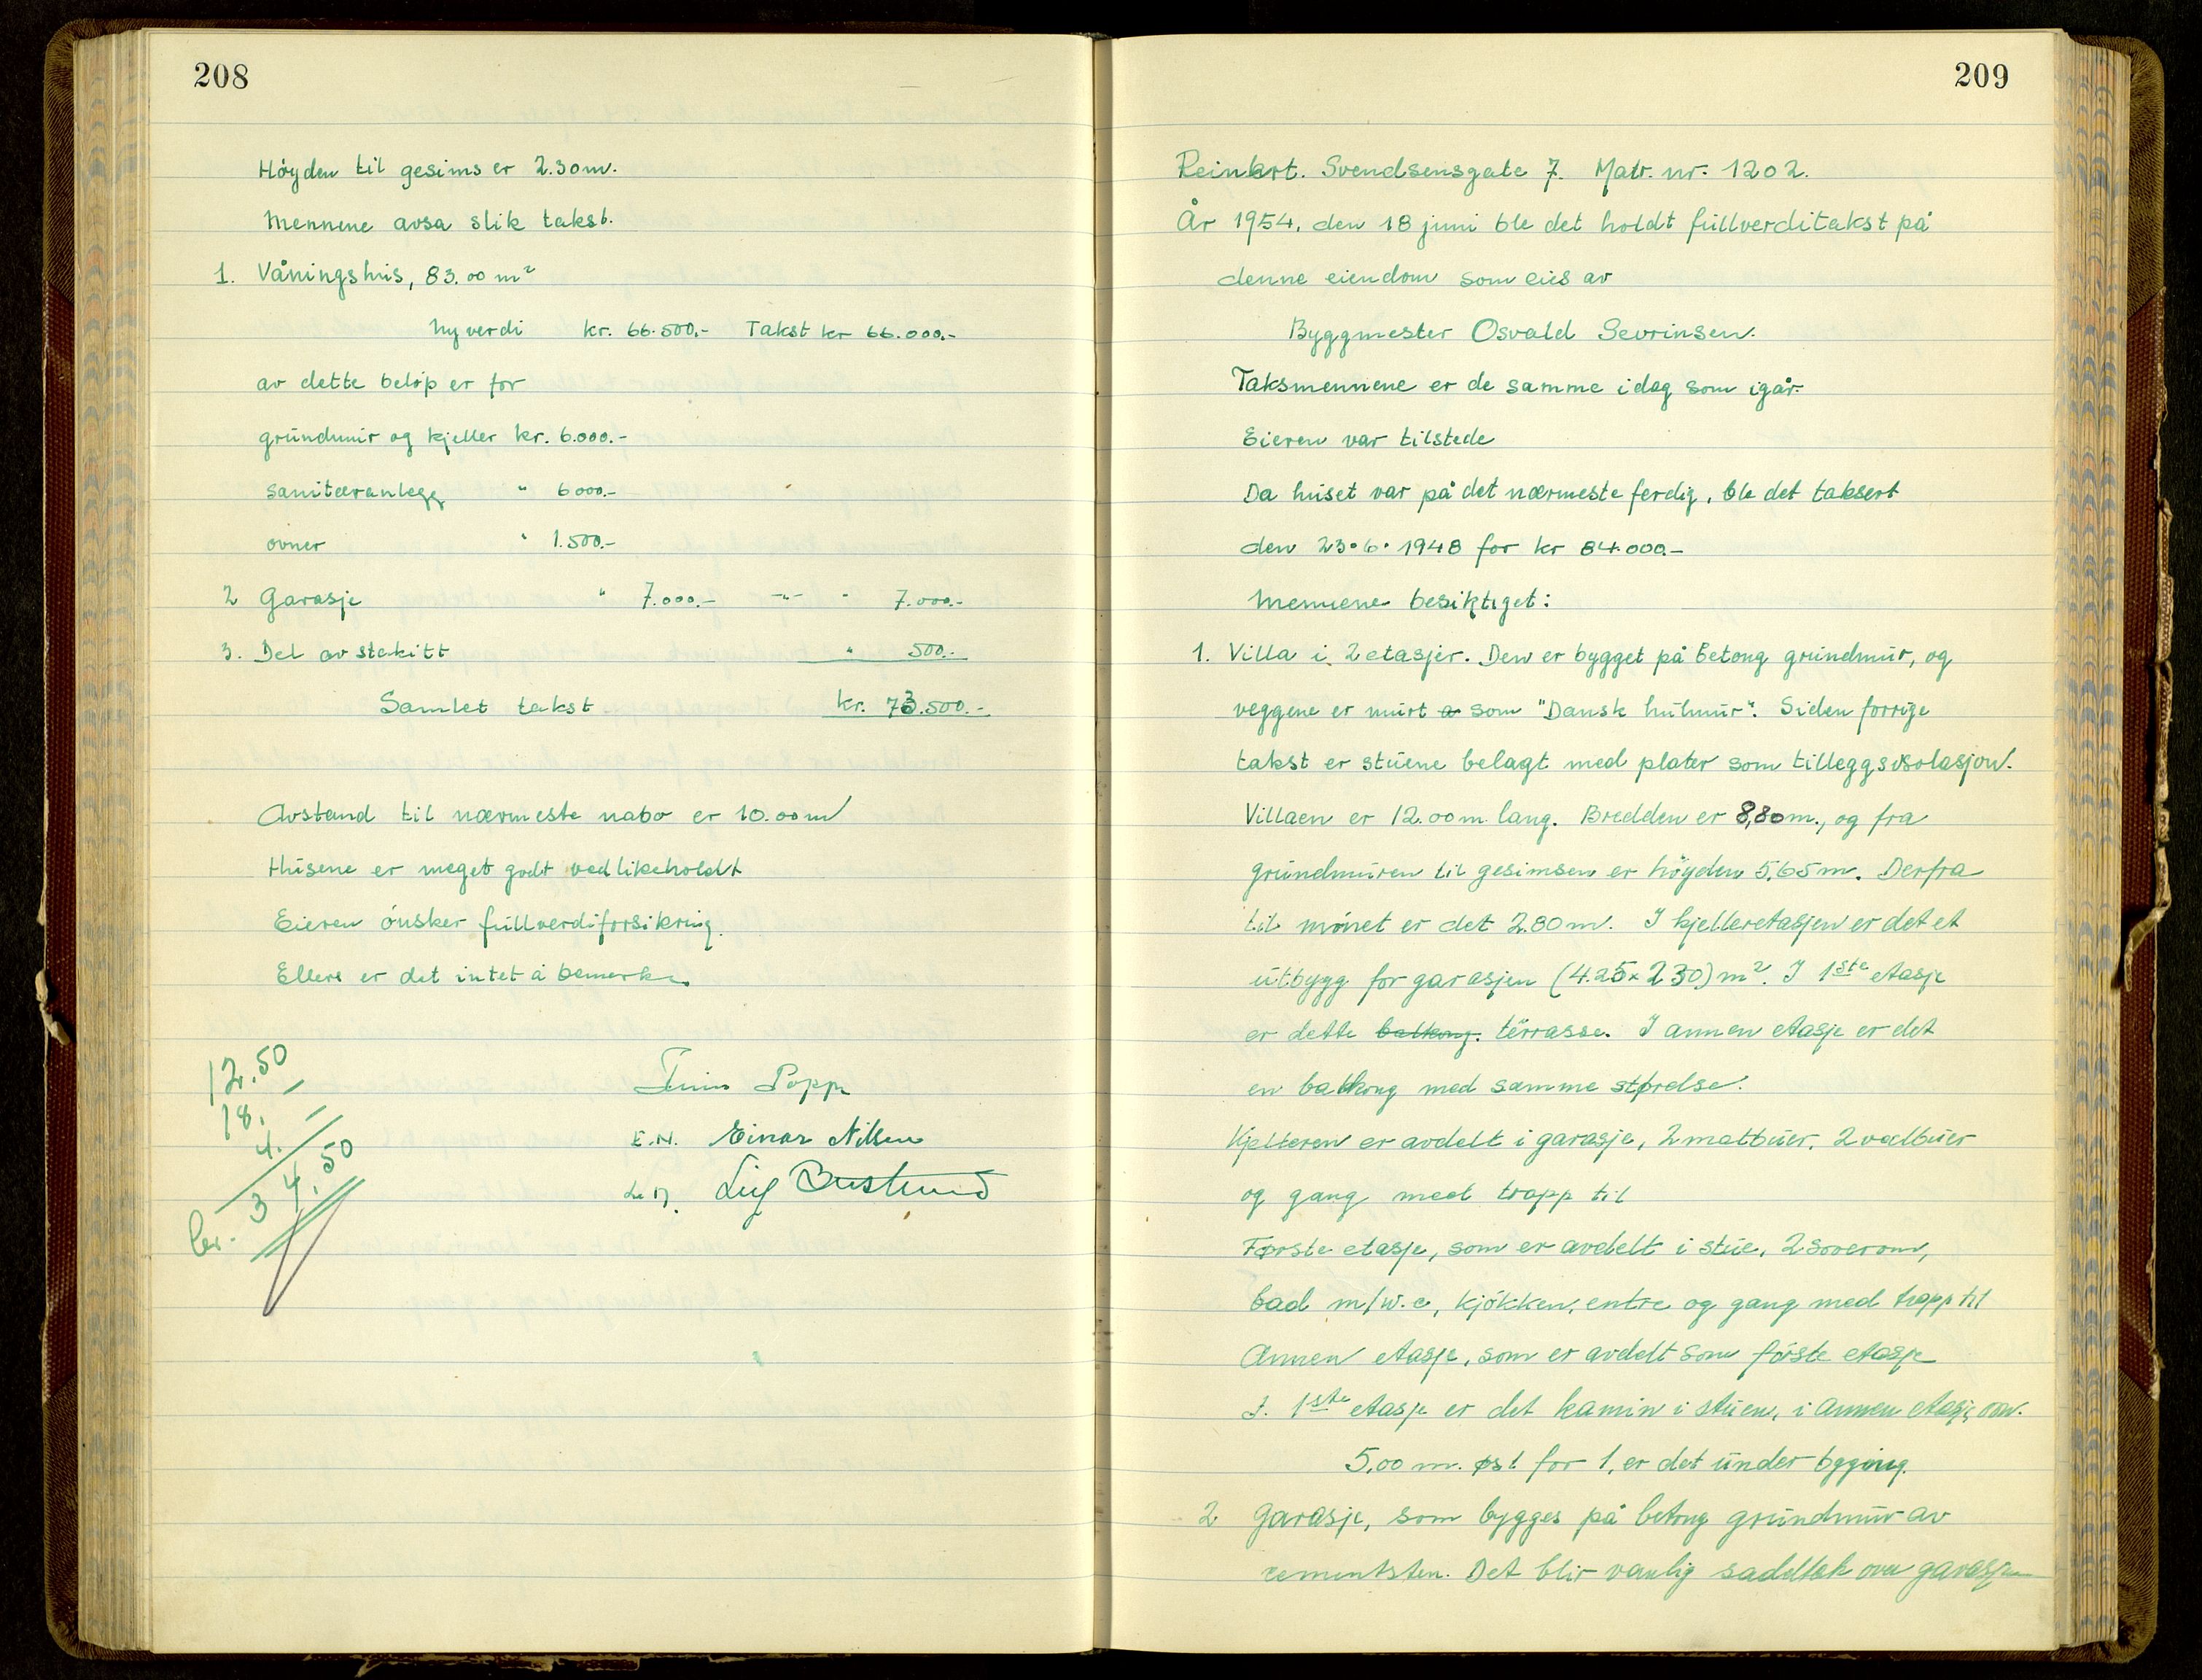 208
Höyden til gesims er 2.30m.
Mennene avsa slik takst.
1. Våningshus, 83.00 m²
nyverdi kr. 66.500.- Takst kr 66.000.-
av dette beløp er for
grunnmur og kjeller kr. 6.000.-
sanitæranlegg " 6000.-
ovner " 1.500.-
2 Garasje " 7.000.- -"- " 7.000.-
3. Del av stakitt " 500.-
Samlet takst kr. 73.500.-
Avstand til nærmeste nabo er 10.00m
Husene er meget godt vedlikeholdt
Eieren önsker fullverdiforsikring.
Ellers er det intet å bemerke.
12.50
18. -
4. -
kr. 34.50
Popp
E.N. Einar Nilsen
Leif
209
Reinhrt. Svendsensgate 7. Matr. nr. 1202.
År 1954, den 18 juni ble det holdt fullverditakst på
denne eiendom som eies av
Byggmester Osvald Sevrinsen.
Taksmennene er de samme idag som igår.
Eieren var tilstede
Da huset var på det nærmeste ferdig, ble det taksert
den 23.6.1948 for kr 84.000.-
Mennene besiktiget:
1. Villa i 2 etasjer. Den er bygget på betong grundmur, og
veggene er murt a som "Dansk hulmur". Siden forrige
takst er stuene belagt med plater som tilleggsisolasjon.
Villaen er 12.00m lang. Bredden er 8,80m., og fra
grundmuren til gesimsen er höyden 5.65m. Derfra
til mönet er det 2.80m. I kjelleretasjen er det et
utbygg for garasjen (4.25x2.30)m². I 1ste etasje
er dette balkong. terrasse. I annen etasje er det
en balkong med samme størelse.
Kjelleren er avdelt i garasje, 2 matbuer, 2 vedbuer
og gang med trapp til
Første etasje, som er avdelt i stue, 2 soverom,
bad m/w.c, kjökken, entre og gang med trapp til
Annen etasje, som er avdelt som föste etasje
I. 1ste etasje er det kamin i stuen, i annen etasje ovn.
5,00 m. øst for 1, er det under bygging.
2 Garasje, som bygges på betong grundmur av
cementsten. Det blir vanlig saddeltak over garasjen